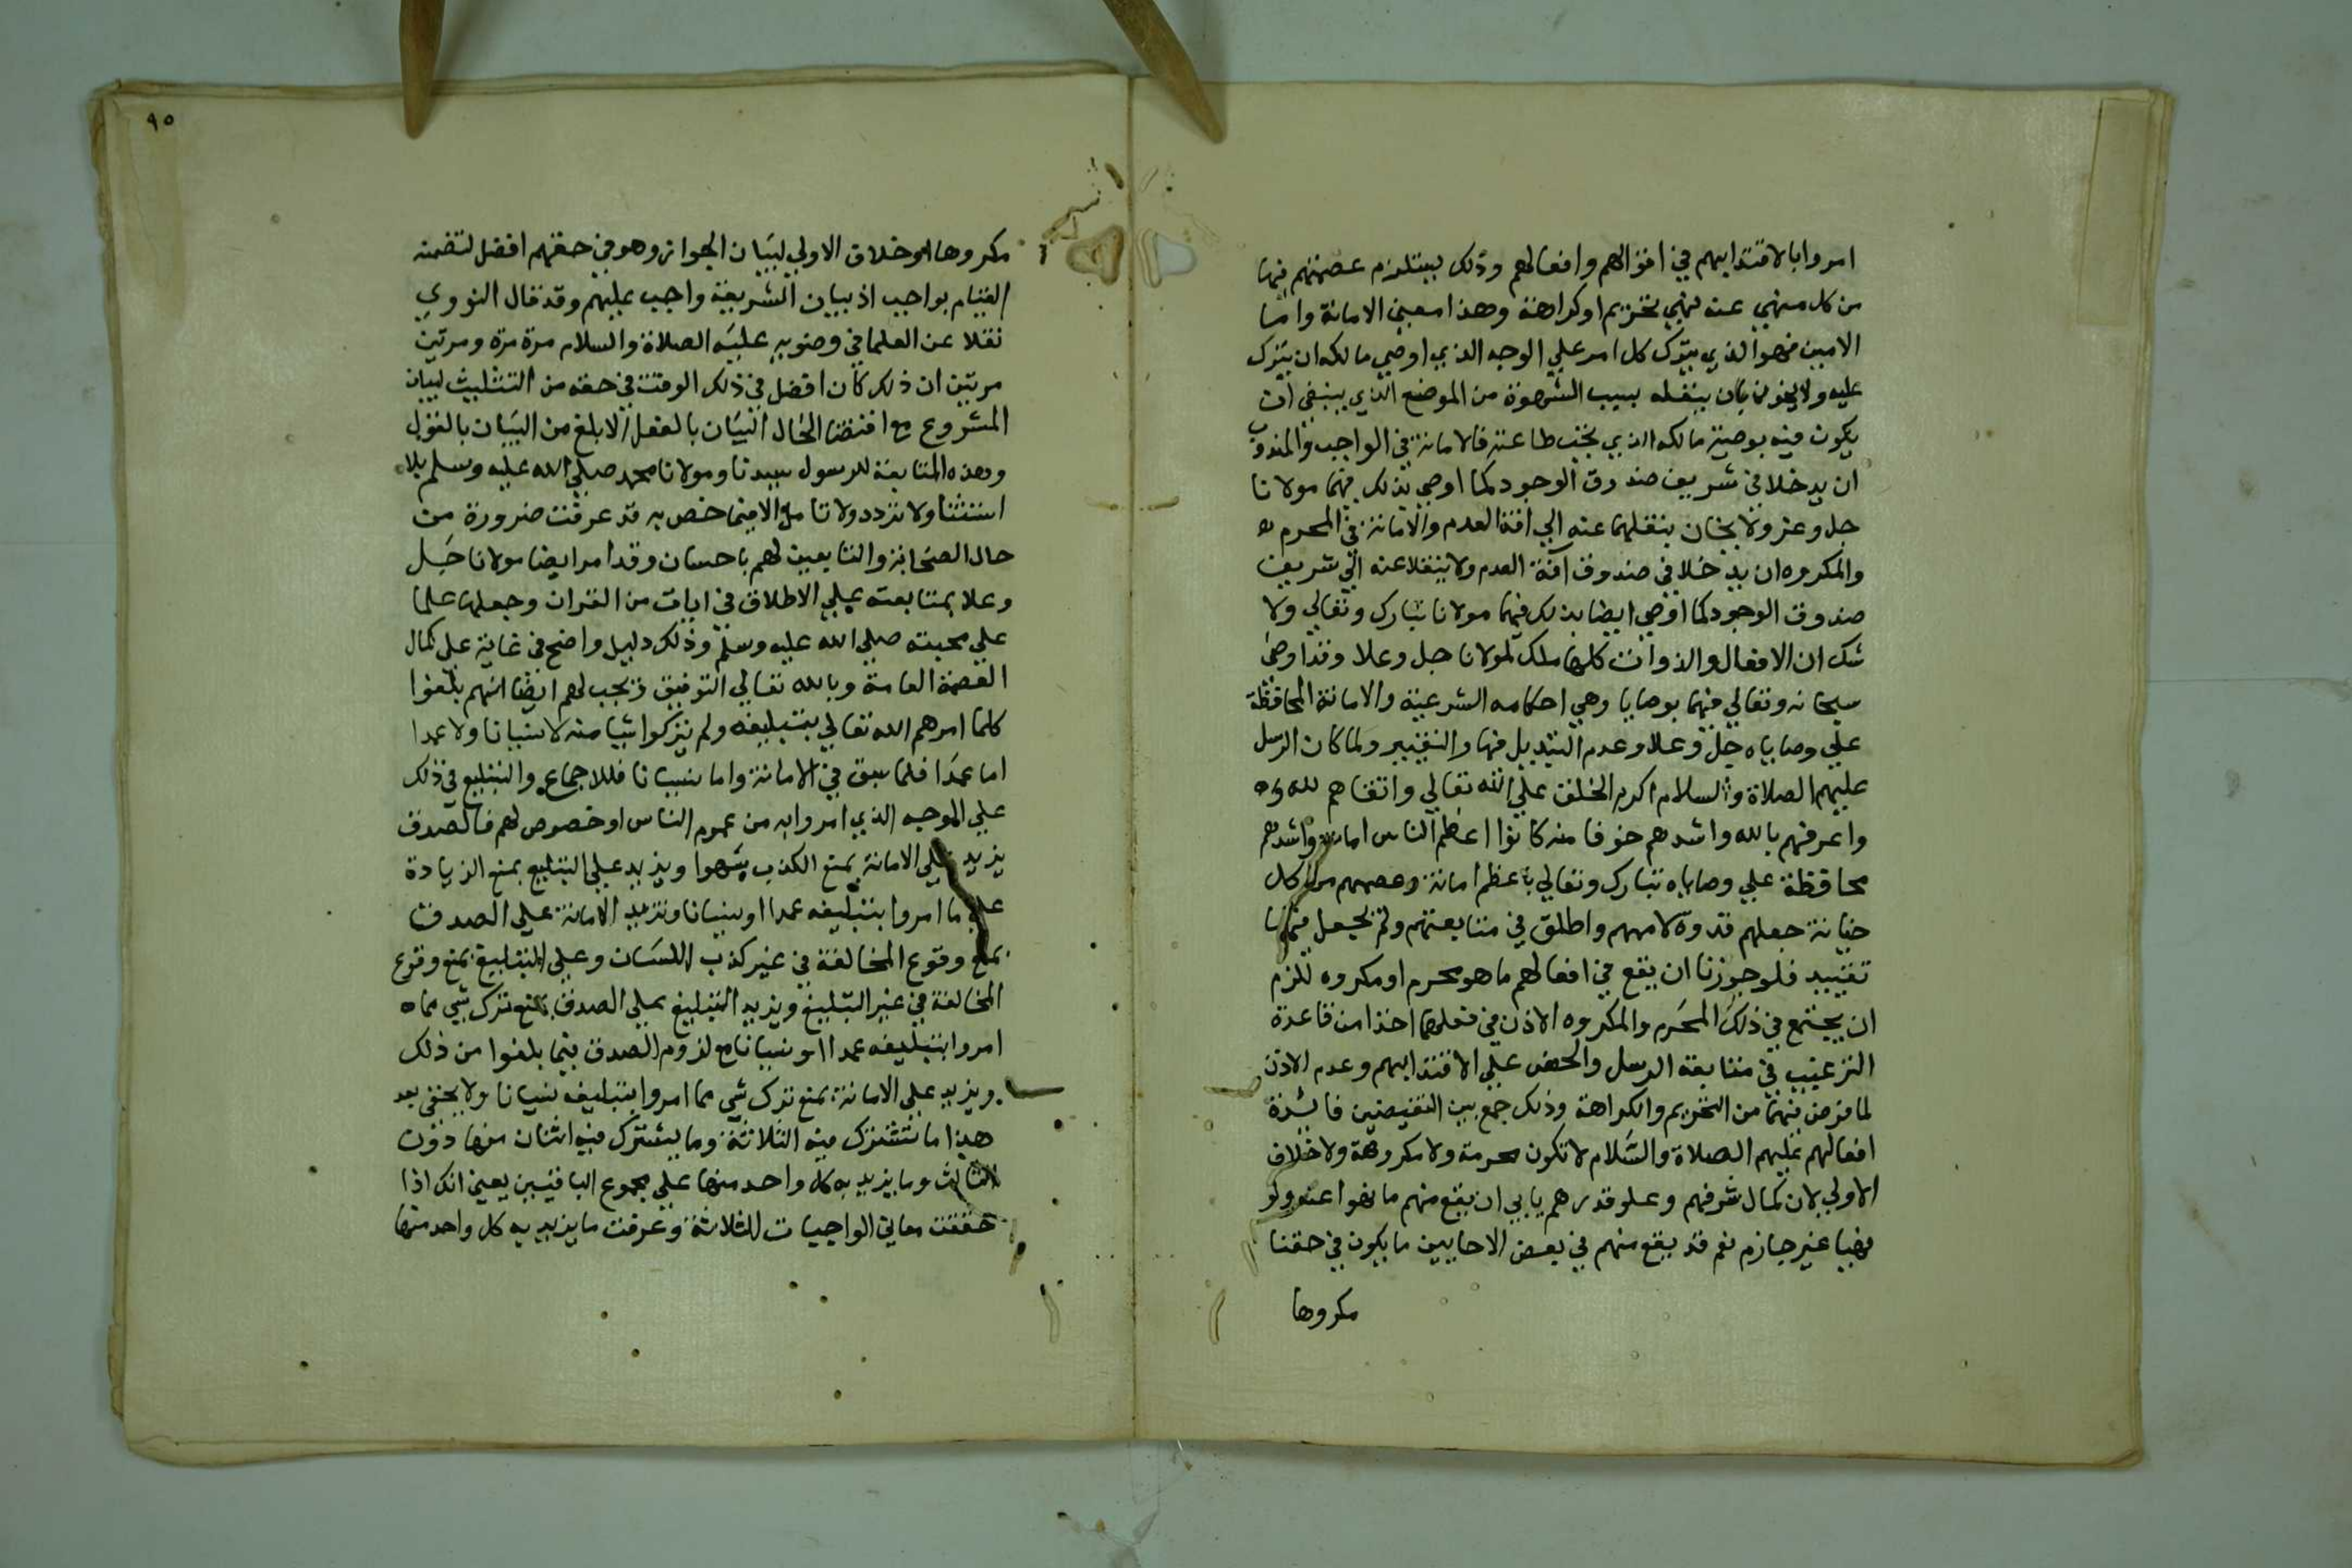 امروا بالاقتدا بهم في اقوالهم وافعالهم وذلك يستلزم عصمتهم فيها
من كل منهي عنه نهي تحريم او كراهة وهذا معني الامانة واما
الامين فهو الذي يترك كل امر علي الوجه الذي اوصي مالكه ان يترك
عليه ولا يخون بان ينقله بسبب الشهوة من الموضع الذي ينبغي ان
يكون فيه بوصية مالكه الذي يجب طاعته فالامانة في الواجب والمندوب
ان يدخلا في شريف صندوق الوجود كما اوصي بذلك فيهما مولانا
جل وعز ولا يخان بنقلهما عنه الي افة العدم والامانة في المحرم
والمكروه ان يدخلا في صندوق آفة العدم ولا ينقلا عنه الي شريف
صندوق الوجود كما اوصي ايضا بذلك فيهما مولانا تبارك وتعالي ولا
شك ان الافعال والذوات كلها ملك لمولانا جل وعلا وقد اوصي
سبحانه وتعالي فيهما بوصايا وهي احكامه الشرعية والامانة المحافظة
علي وصاياه جل وعلا وعدم التبديل فيها والتغيير ولما كان الرسل
عليهم الصلاة والسلام اكرم الخلق علي الله تعالي واتقاهم لله
واعرفهم بالله واشدهم خوفا منه كانوا اعظم الناس امانة واشدهم
محافظة علي وصاياه تبارك وتعالي باعظم امانة وعصمهم من كل
خيانة جعلهم قدوة لاممهم واطلق في متابعتهم ولم يجعل فيها
تقييد فلو جوزنا ان يقع في افعالهم ما هو محرم او مكروه للزم
ان يجتمع في ذلك المحرم والمكروه الاذن في فعلهما اخذا من قاعدة
الترغيب في متابعة الرسل والحض علي الاقتدا بهم وعدم الاذن
لما فرض فيهما من التحريم والكراهة وذلك جمع بين النقيضين فائدة
افعالهم عليهم الصلاة والسلام لا تكون محرمة ولا مكروهة ولا خلاف
الاولي لان كمال شرفهم وعلو قدرهم يابي ان يقع منهم ما نهوا عنه ولو
نهيا غير جازم نعم قد يقع منهم في بعض الاحايين ما يكون في حقنا
مكروها
٩٥
مكروها او خلاف الاولي لبيان الجواز وهو في حقهم افضل لتضمنه
القيام بواجب اذ بيان الشريعة واجب عليهم وقد قال النووي
نقلا عن العلما في وضوئه عليه الصلاة والسلام مرة مرة ومرتين
مرتين ان ذلك كان افضل في ذلك الوقت في حقه من التثليث لبيان
المشروع مع اقتضا الحال البيان بالفعل الابلغ من البيان بالقول
وهذه المتابعة للرسول سيدنا ومولانا محمد صلي الله عليه وسلم بلا
استثنا ولا تردد ولا تامل الا فيما خص به قد عرفت ضرورة من
حال الصحابة والتابعين لهم باحسان وقد امر ايضا مولانا جل
وعلا بمتابعته علي الاطلاق في ايات من القران وجعلها علما
علي محبته صلي الله عليه وسلم وذلك دليل واضح في غاية علي كمال
العصمة العامة وبالله تعالي التوفيق ويجب لهم ايضا انهم بلغوا
كلما امرهم الله تعالي بتبليغه ولم يتركوا شيا منه لا نسيانا ولا عمدا
اما عمدا فلما سبق في الامانة واما نسيانا فللاجماع والتبليغ في ذلك
علي الوجه الذي امروا به من عموم الناس او خصوص لهم فالصدق
يزيد علي الامانة بمنع الكذب سهوا ويزيد علي التبليغ بمنع الزيادة
علي ما امروا بتبليغه عمدا او نسيانا وتزيد الامانة علي الصدق
بمنع وقوع المخالفة في غير كذب اللسان وعلي التبليغ بمنع وقوع
المخالفة في غير التبليغ ويزيد التبليغ علي الصدق بمنع ترك شي مما
امروا بتبليغه عمدا او نسيانا مع لزوم الصدق فيما بلغوا من ذلك
ويزيد علي الامانة بمنع ترك شي مما امروا بتبليغه نسيانا ولا يخفي بعد
هذا ما تشترك فيه الثلاثة وما يشترك فيه اثنان منها دون
الثالث وما يزيد به كل واحد منها علي مجموع الباقيين يعني انك اذا
حققت معاني الواجبات الثلاثة وعرفت ما يزيد به كل واحد منها